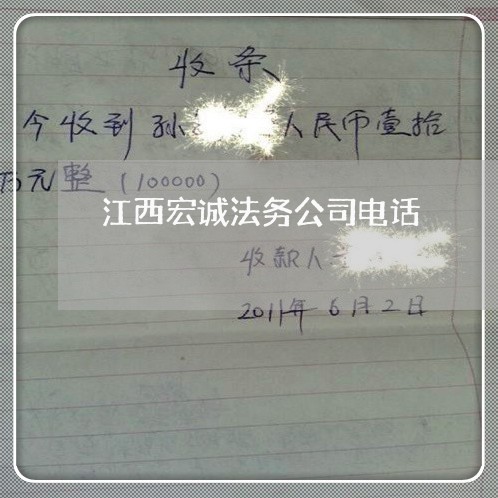 收条
今收到孙 人民币壹拾
万元整（100000）
江西宏诚法务公司电话
收款人
2011年6月2日